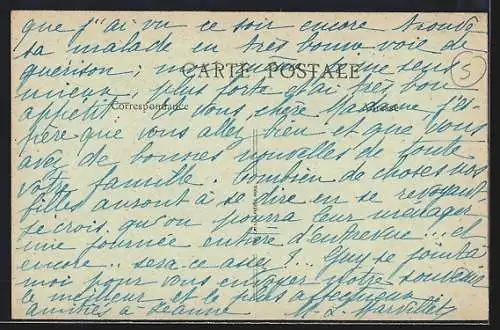 que j'ai vu ce soir encore trouve
sa malade en très bonne voie de
guérison; me sens
CARTE POSTALE
5
mieux, plus forte et ai très bon
appétit. vous, chère Madame j'es-
Correspondance
père que vous allez bien et que vous
avez de bonnes nouvelles de toute
votre famille. Combien de choses nos
filles auront à se dire en se revoyant.
Je crois qu'on pourra leur ménager
une journée entière d'entrevue.. et
encore... sera-ce assez?.. Guy se joint à
moi pour vous envoyer notre souvenir
le meilleur et le plus affectueux
amitiés à Jeanne